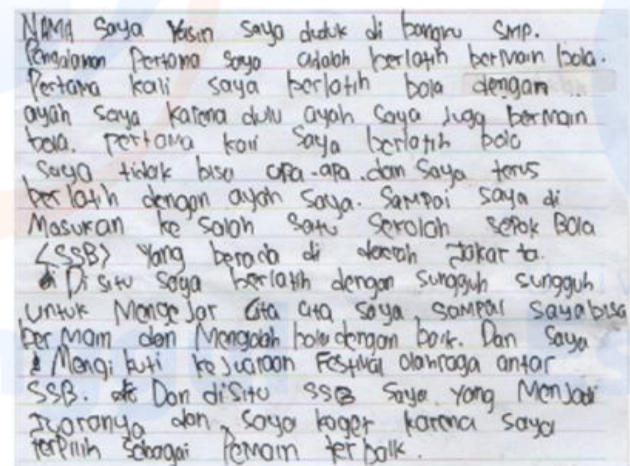 NAMA Saya Yasin Saya duduk di bangku SMP.
Pengalaman Pertama saya adalah berlatih bermain bola.
Pertama kali saya berlatih bola dengan
ayah saya karena dulu ayah saya juga bermain
bola. pertama kali saya berlatih bola
saya tidak bisa apa-apa.dan saya terus
berlatih dengan ayah saya. Sampai saya di
Masukan ke salah satu Sekolah sepak Bola
<SSB> Yang berada di daerah Jakarta.
Di situ saya berlatih dengan sungguh sungguh
untuk Mengejar Cita cita saya, sampai saya bisa
berMain dan Mengolah bola dengan baik. Dan Saya
Mengikuti kejuaraan Festival olahraga antar
SSB. Dan disitu SSB Saya Yang Menjadi
Juaranya dan, saya kaget karena saya
terpilih sebagai Pemain terbaik.